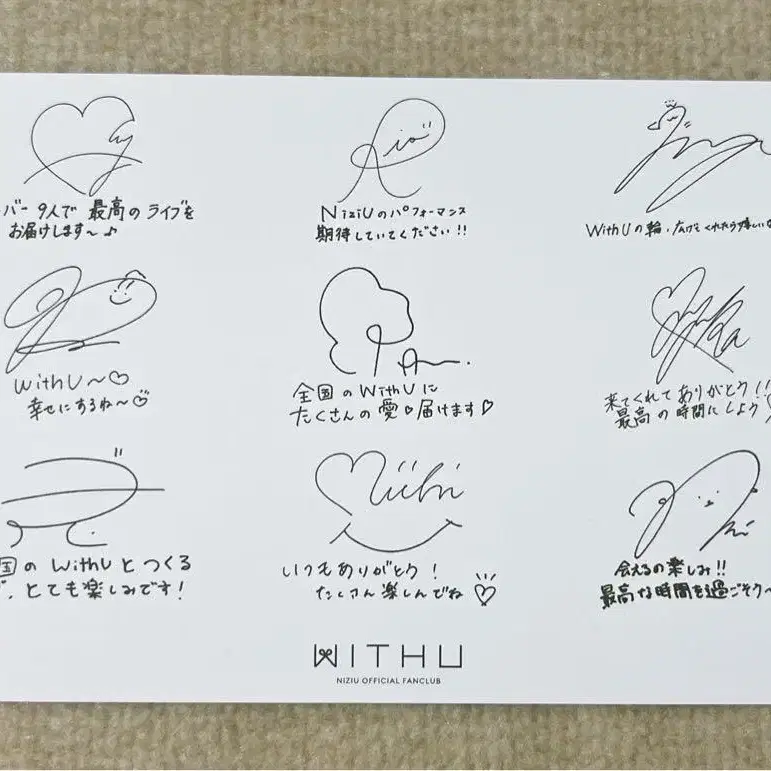 バー9人で 最高の ライブを
お届けします〜♪
Rio
NiziUのパフォーマンス
期待していてください!!
WithUの輪、広げてくれたら嬉しいな
WithU〜♡
幸せにするね〜♡
全国のWithUに
たくさんの愛♡届けます♡
来てくれてありがとう!!
最高の時間にしよう♡
国の WithUとつくる
とても楽しみです!
Miihi
いつもありがとう!
たくさん楽しんでね♡
会えるの楽しみ!!
最高な時間を過ごそう〜
WITHU
NIZIU OFFICIAL FANCLUB